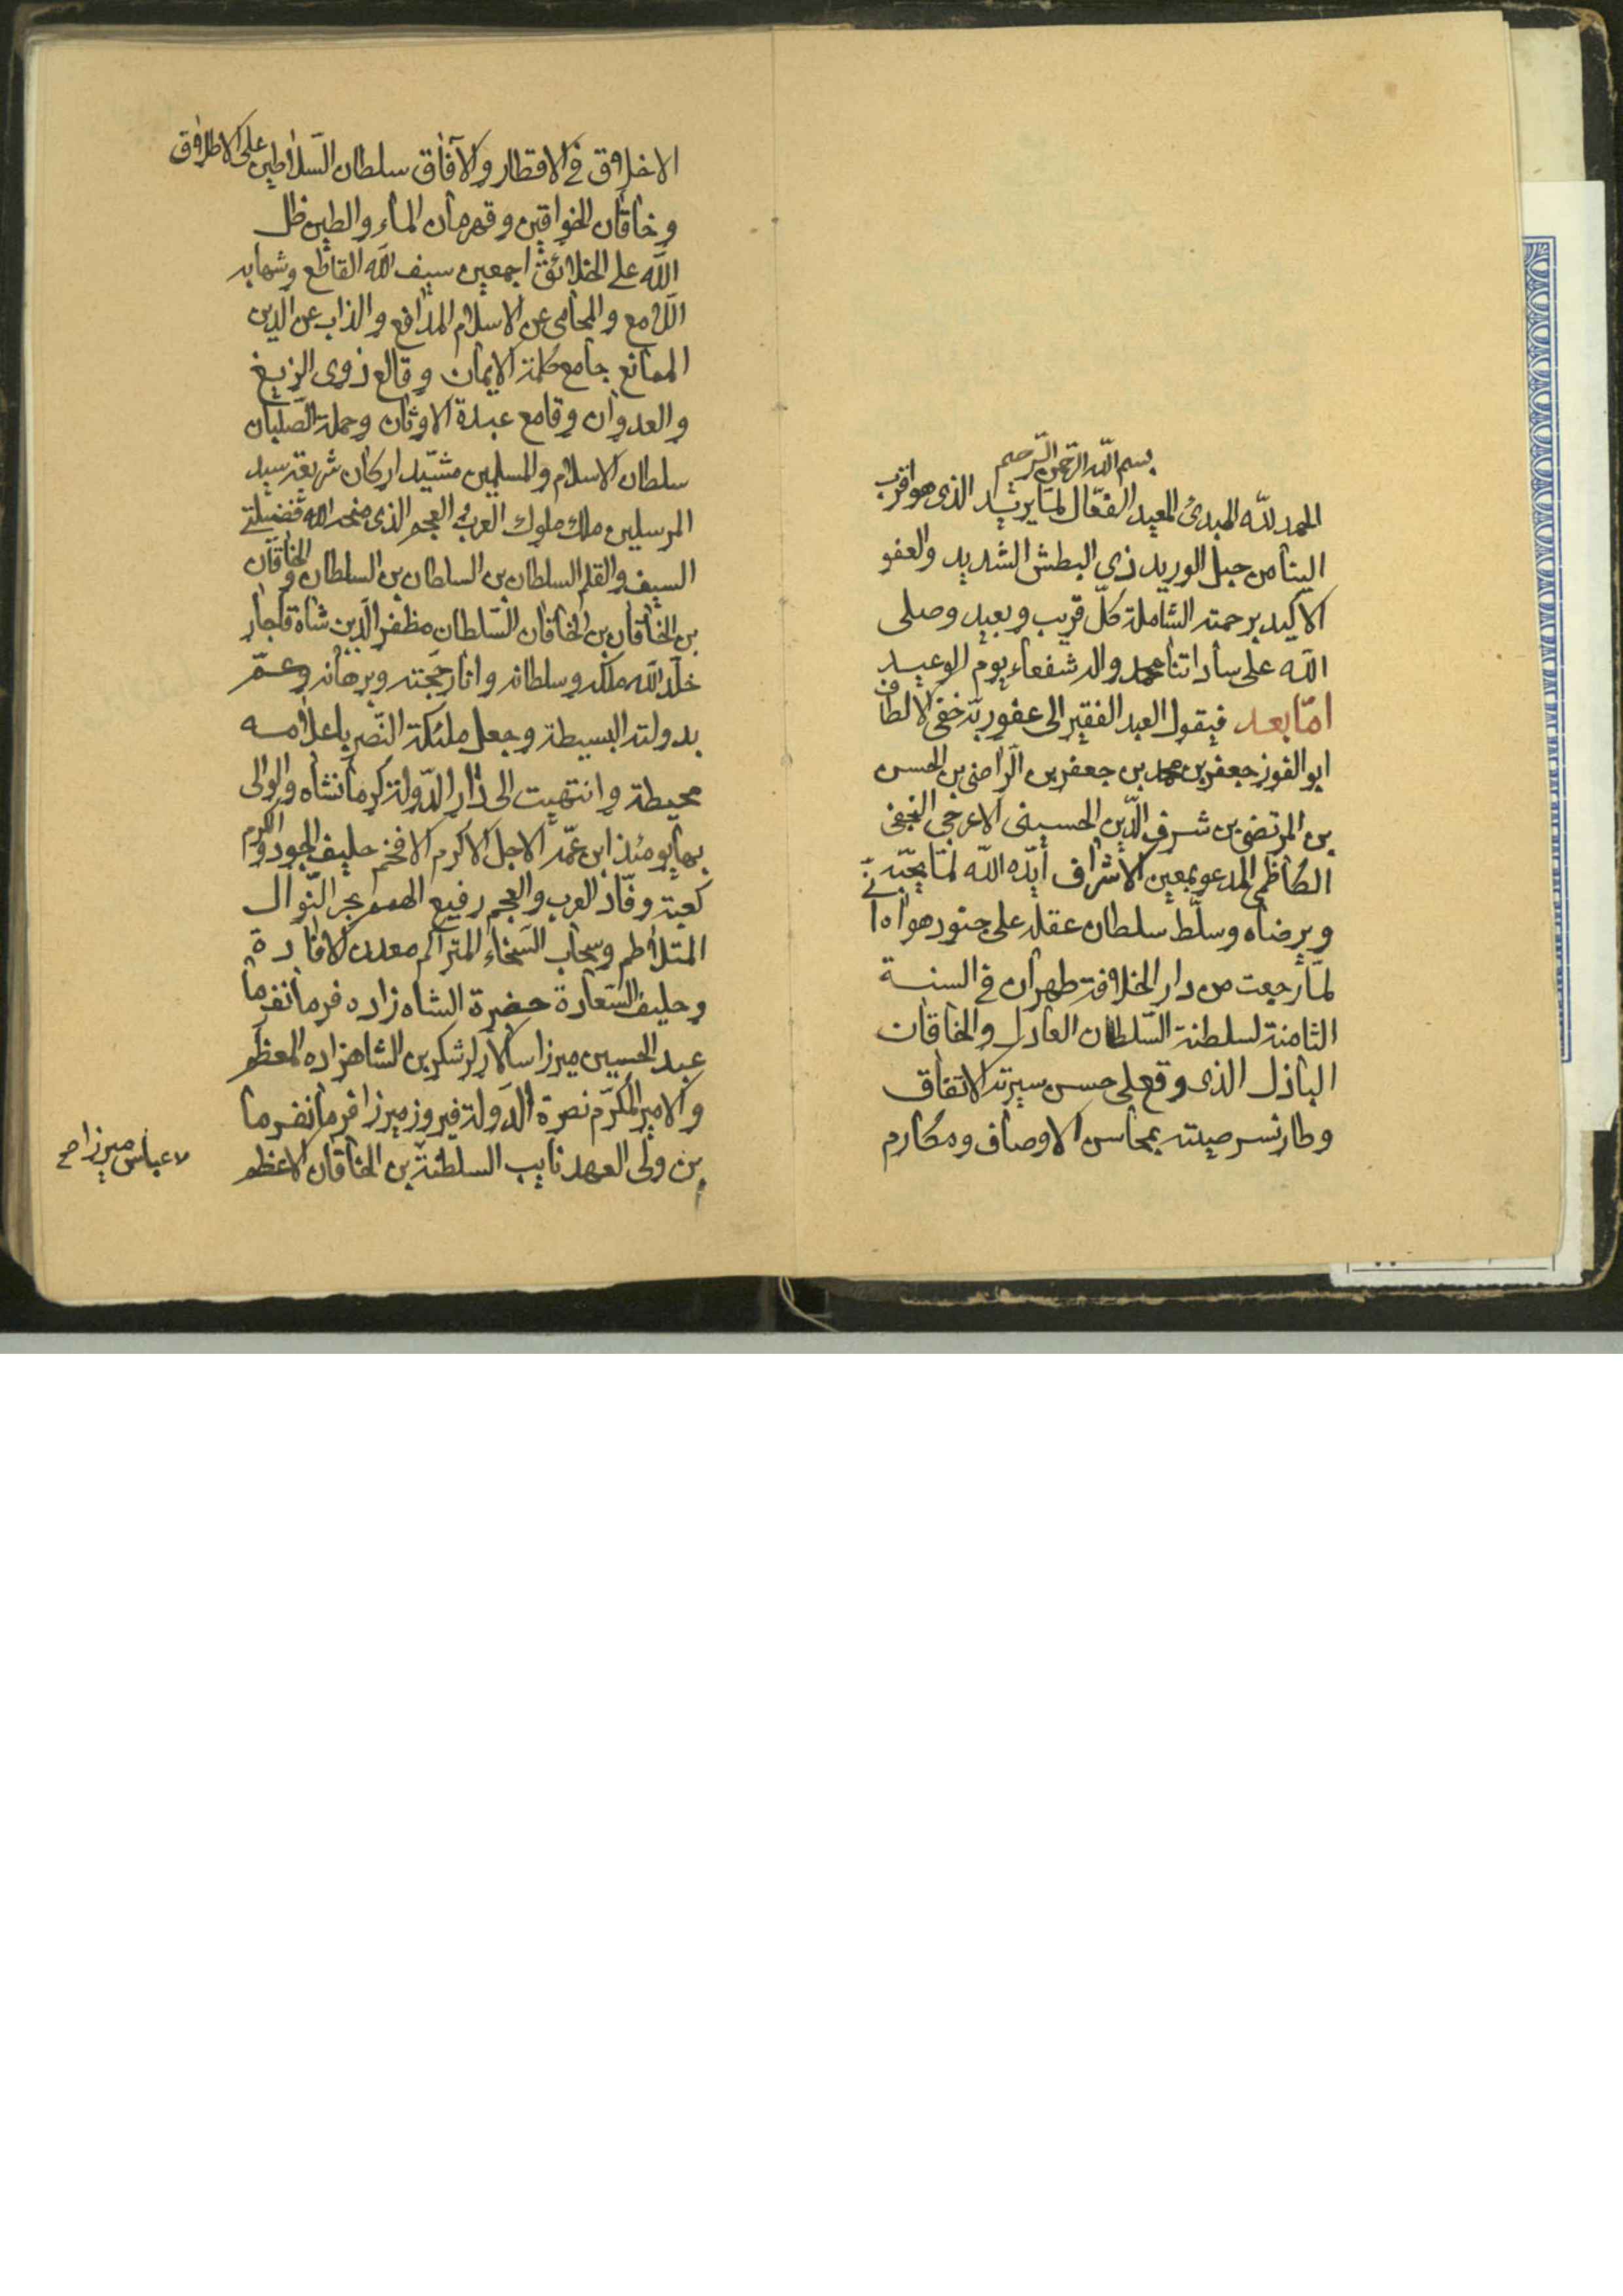 بسم الله الرحمن الرحيم
الحمد لله المبدئ المعيد الفعّال لما يريد الذى هو اقرب
الينا من حبل الوريد ذي البطش الشديد والعفو
الاكيد برحمته الشاملة كلّ قريب وبعيد وصلى
الله على ساداتنا محمد واله شفعاء يوم الوعيد
امّا بعد فيقول العبد الفقير الى عفو ربّه خفى الالطاف
ابو الفوز جعفر بن محمد بن جعفر بن الراضى بن الحسن
بن المرتضى بن شرف الدّين الحسينى الاعرجي النجفى
الكاظمى المدعو بمعين الاشراف ايّده الله لما يحبّه
ويرضاه وسلّط سلطان عقله على جنود هواه انّى
لمّا رجعت من دار الخلافة طهران في السنة
الثامنة لسلطنة السّلطان العادل والخاقان
الباذل الذى وقع على حسن سيرته الاتفاق
وطار نسر صيته بمحاسن الاوصاف ومكارم
الاخلاق في الاقطار والآفاق سلطان السّلاطين على الاطلاق
وخاقان الخواقين وقهرمان الماء والطين ظل
الله على الخلائق اجمعين سيف الله القاطع وشهابه
اللامع والمحامى عن الاسلام المدافع والذاب عن الدين
الممانع جامع كلمة الايمان وقالع ذوى الزيغ
والعدوان وقامع عبدة الاوثان وحملة الصّلبان
سلطان الاسلام والمسلمين مشيّد اركان شريعة سيد
المرسلين ملك ملوك العرب و العجم الذى منحه الله فضيلتي
السيف والقلم السلطان بن السلطان بن السلطان والخاقان
بن الخاقان بن الخاقان السّلطان مظفر الدّين شاه قاجار
خلّد الله ملكه وسلطانه وانار حجّته وبرهانه وعمّر
بدولته البسيطة وجعل ملئكة النّصر باعلامه
محيطة وانتهيت الى دار الدّولة كرمانشاه والوالى
بها يومئذ ابن عمّه الاجل الاكرم الافخم حليف الجود والكرم
كعبة وفّاد العرب والعجم رفيع الهمم بحر النّوال
المتلاطم وسحاب السّخاء المتراكم معدن الافادة
وحليف السّعادة حضرة الشاه زاده فرمانفرما
عبد الحسين ميرزا سالار لشكر بن الشاهزاده المعظم
والامير المكرّم نصرة الدّولة فيروز ميرزا فرمانفرما
بن ولى العهد نايب السلطنة بن الخاقان الاعظم
عباس ميرزا صح